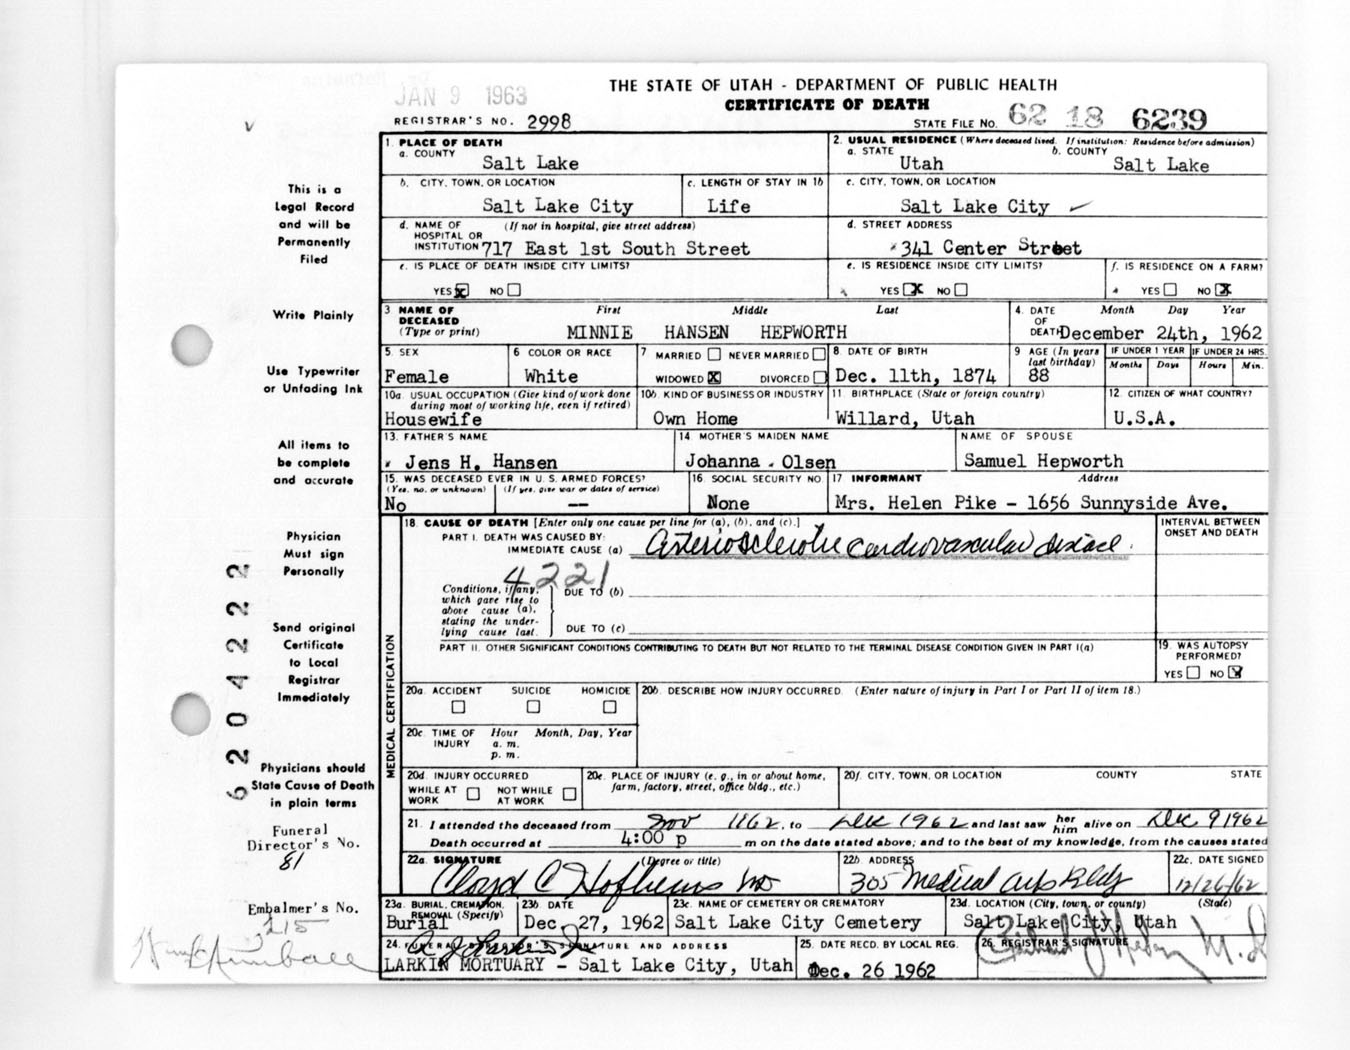 JAN 9 1963
THE STATE OF UTAH - DEPARTMENT OF PUBLIC HEALTH
CERTIFICATE OF DEATH
REGISTRAR'S NO. 2998
STATE FILE NO. 62 18 6239
1. PLACE OF DEATH
a. COUNTY
Salt Lake
2. USUAL RESIDENCE (Where deceased lived. If institution: Residence before admission)
a. STATE b. COUNTY
Utah Salt Lake
b. CITY, TOWN, OR LOCATION
Salt Lake City
c. LENGTH OF STAY IN 1b
Life
c. CITY, TOWN, OR LOCATION
Salt Lake City
d. NAME OF HOSPITAL OR INSTITUTION (If not in hospital, give street address)
717 East 1st South Street
d. STREET ADDRESS
341 Center Street
e. IS PLACE OF DEATH INSIDE CITY LIMITS?
YES X NO
e. IS RESIDENCE INSIDE CITY LIMITS?
YES X NO
f. IS RESIDENCE ON A FARM?
YES NO X
3 NAME OF DECEASED (Type or print)
First Middle Last
MINNIE HANSEN HEPWORTH
4. DATE OF DEATH Month Day Year
December 24th, 1962
5. SEX
Female
6 COLOR OR RACE
White
7 MARRIED NEVER MARRIED
WIDOWED X DIVORCED
8. DATE OF BIRTH
Dec. 11th, 1874
9 AGE (In years last birthday)
88
IF UNDER 1 YEAR
Months Days
IF UNDER 24 HRS.
Hours Min.
10a. USUAL OCCUPATION (Give kind of work done during most of working life, even if retired)
Housewife
10b. KIND OF BUSINESS OR INDUSTRY
Own Home
11. BIRTHPLACE (State or foreign country)
Willard, Utah
12. CITIZEN OF WHAT COUNTRY?
U.S.A.
13. FATHER'S NAME
Jens H. Hansen
14. MOTHER'S MAIDEN NAME
Johanna . Olsen
NAME OF SPOUSE
Samuel Hepworth
15. WAS DECEASED EVER IN U. S. ARMED FORCES?
(Yes, no, or unknown) (If yes, give war or dates of service)
No --
16. SOCIAL SECURITY NO.
None
17 INFORMANT Address
Mrs. Helen Pike - 1656 Sunnyside Ave.
MEDICAL CERTIFICATION
18. CAUSE OF DEATH [Enter only one cause per line for (a), (b), and (c).]
PART I. DEATH WAS CAUSED BY:
IMMEDIATE CAUSE (a) Arteriosclerotic cardiovascular disease.
INTERVAL BETWEEN ONSET AND DEATH
4221
Conditions, if any, which gave rise to above cause (a), stating the underlying cause last.
DUE TO (b)
DUE TO (c)
PART II. OTHER SIGNIFICANT CONDITIONS CONTRIBUTING TO DEATH BUT NOT RELATED TO THE TERMINAL DISEASE CONDITION GIVEN IN PART I(a)
19. WAS AUTOPSY PERFORMED?
YES NO X
20a. ACCIDENT SUICIDE HOMICIDE
20b. DESCRIBE HOW INJURY OCCURRED. (Enter nature of injury in Part I or Part II of item 18.)
20c. TIME OF INJURY Hour Month, Day, Year
a. m.
p. m.
20d. INJURY OCCURRED
WHILE AT WORK NOT WHILE AT WORK
20e. PLACE OF INJURY (e. g., in or about home, farm, factory, street, office bldg., etc.)
20f. CITY, TOWN, OR LOCATION COUNTY STATE
21. I attended the deceased from Nov 1962, to Dec 1962 and last saw her him alive on Dec. 9 1962
Death occurred at 4:00 p m on the date stated above; and to the best of my knowledge, from the causes stated
22a. SIGNATURE (Degree or title)
22b ADDRESS
305 Medical Arts Bldg
22c. DATE SIGNED
12/26/62
23a. BURIAL, CREMATION, REMOVAL (Specify)
Burial
23b. DATE
Dec. 27, 1962
23c. NAME OF CEMETERY OR CREMATORY
Salt Lake City Cemetery
23d. LOCATION (City, town, or county) (State)
Salt Lake City, Utah
24. FUNERAL DIRECTOR'S SIGNATURE AND ADDRESS
LARKIN MORTUARY - Salt Lake City, Utah
25. DATE RECD. BY LOCAL REG.
Dec. 26 1962
26. REGISTRAR'S SIGNATURE
This is a
Legal Record
and will be
Permanently
Filed
Write Plainly
Use Typewriter
or Unfading Ink
All items to
be complete
and accurate
Physician
Must sign
Personally
Send original
Certificate
to Local
Registrar
Immediately
Physicians should
State Cause of Death
in plain terms
Funeral
Director's No.
81
Embalmer's No.
215
6204222